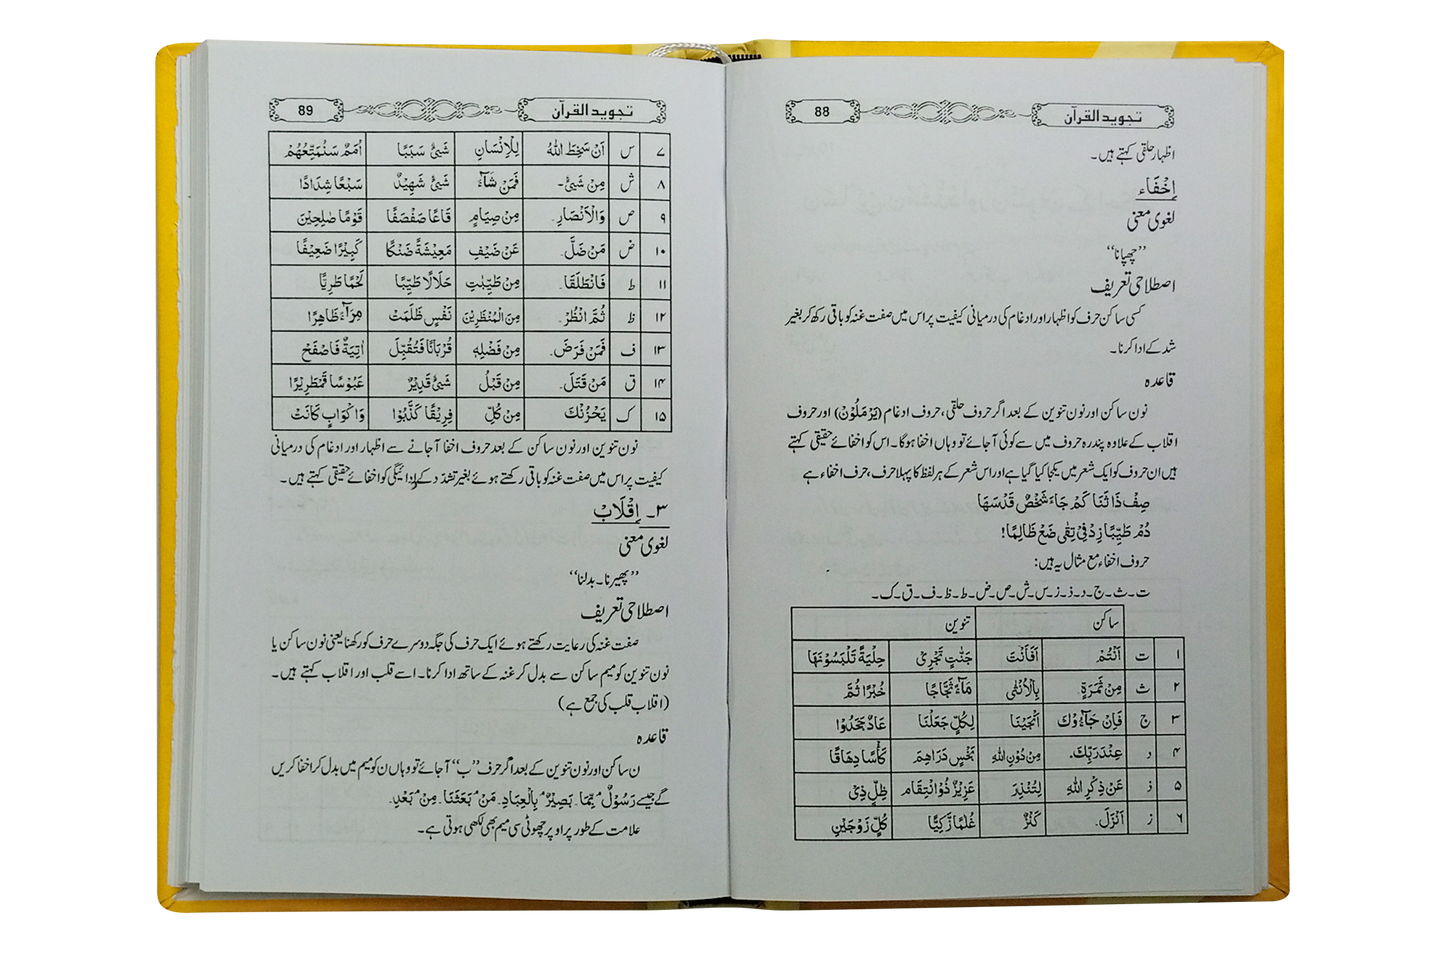 تجوید القرآن 88
اظہار حلقی کہتے ہیں۔
اِخْفَاء
لغوی معنی
”چھپانا“
اصطلاحی تعریف
کسی ساکن حرف کو اظہار اور ادغام کی درمیانی کیفیت پر اس میں صفت غنہ کو باقی رکھ کر بغیر
شد کے ادا کرنا۔
قاعدہ
نون ساکن اور نون تنوین کے بعد اگر حروف حلقی، حروف ادغام (یَرْمَلُوْنَ) اور حروف
اقلاب کے علاوہ پندرہ حروف میں سے کوئی آجائے تو وہاں اخفا ہوگا۔ اس کو اخفائے حقیقی کہتے
ہیں ان حروف کو ایک شعر میں یکجا کیا گیا ہے اور اس شعر کے ہر لفظ کا پہلا حرف، حرف اخفاء ہے
صِفْ ذَا ثَنَا كَمْ جَاءَ شَخْصٌ قَدْ سَهَا
دُمْ طَيِّبًا زِدْ فِيْ تِقٰى ضَعْ ظَالِمًا!
حروف اخفاء مع مثال یہ ہیں:
ت۔ث۔ج۔د۔ذ۔ز۔س۔ش۔ص۔ض۔ط۔ظ۔ف۔ق۔ک۔
ساکن تنوین
۱ ت اَنْتُمْ اَفَاَنْتَ جَنّٰتٍ تَجْرِيْ حِلْيَةً تَلْبَسُوْنَهَا
۲ ث مِنْ ثَمَرَةٍ بِالْاُنْثٰى مَآءً ثَجَّاجًا خُبْرًا ثُمَّ
۳ ج فَاِنْ جَآءُوْكَ اَنْجَيْنَا لِكُلٍّ جَعَلْنَا عَادٌ جَحَدُوْا
۴ د عِنْدَ رَبِّكَ۔ مِنْ دُوْنِ اللّٰهِ بَخْسٍ دَرَاهِمَ كَأْسًا دِهَاقًا
۵ ذ عَنْ ذِكْرِ اللّٰهِ لِتُنْذِرَ عَزِيْزٌ ذُوانْتِقَام ظِلٍّ ذِيْ
۶ ز اَنْزَلَ۔ كَنْزٌ غُلٰمًا زَكِيًّا كُلٍّ زَوْجَيْنِ
تجوید القرآن 89
۷ س اَنْ سَخِطَ اللّٰهُ لِلْاِنْسَانِ شَيْءٍ سَبَبًا اُمَمٌ سَنُمَتِّعُهُمْ
۸ ش مِنْ شَيْءٍ۔ فَمَنْ شَآءَ شَيْءٍ شَهِيْدٌ سَبْعًا شِدَادًا
۹ ص وَالْاَنْصَارِ۔ مِنْ صِيَامٍ قَاعًا صَفْصَفًا قَوْمًا صٰلِحِيْنَ
۱۰ ض مَنْ ضَلَّ۔ عَنْ ضَيْفِ مَعِيْشَةً ضَنْكًا كَبِيْرًا ضَعِيْفًا
۱۱ ط فَانْطَلَقَا۔ مِنْ طَيِّبٰتِ حَلَالًا طَيِّبًا لَحْمًا طَرِيًّا
۱۲ ظ ثُمَّ انْظُرْ۔ مِنَ الْمُنْظَرِيْنَ نَفْسٍ ظَلَمَتْ مِرَآءً ظَاهِرًا
۱۳ ف فَمَنْ فَرَضَ۔ مِنْ فَضْلِهٖ قُرْبَانًا فَتُقُبِّلَ اٰتِيَةٌ فَاصْفَحْ
۱۴ ق مَنْ قَتَلَ۔ مِنْ قَبْلُ شَيْءٍ قَدِيْرٌ عَبُوْسًا قَمْطَرِيْرًا
۱۵ ک يَحْزُنْكَ مِنْ كُلِّ فَرِيْقًا كَذَّبُوْا وَاَكْوَابٍ كَانَتْ
نون تنوین اور نون ساکن کے بعد حروف اخفا آجانے سے اظہار اور ادغام کی درمیانی
کیفیت پر اس میں صفت غنہ کو باقی رکھتے ہوئے بغیر تشدد کے ادائیگی کو اخفائے حقیقی کہتے ہیں۔
۳۔ اِقْلَابْ
لغوی معنی
”پھیرنا۔ بدلنا“
اصطلاحی تعریف
صفت غنہ کی رعایت رکھتے ہوئے ایک حرف کی جگہ دوسرے حرف کو رکھنا یعنی نون ساکن یا
نون تنوین کو میم ساکن سے بدل کر غنہ کے ساتھ ادا کرنا۔ اسے قلب اور اقلاب کہتے ہیں۔
(اقلاب قلب کی جمع ہے)
قاعدہ
ن ساکن اور نون تنوین کے بعد اگر حرف ”ب“ آجائے تو وہاں ن کو میم میں بدل کر اخفا کریں
گے جیسے رَسُوْلٌۢ بِمَا۔ بَصِيْرٌۢ بِالْعِبَادِ۔ مَنْۢ بَعَثَنَا۔ مِنْۢ بَعْدِ۔
علامت کے طور پر اوپر چھوٹی سی میم بھی لکھی ہوتی ہے۔